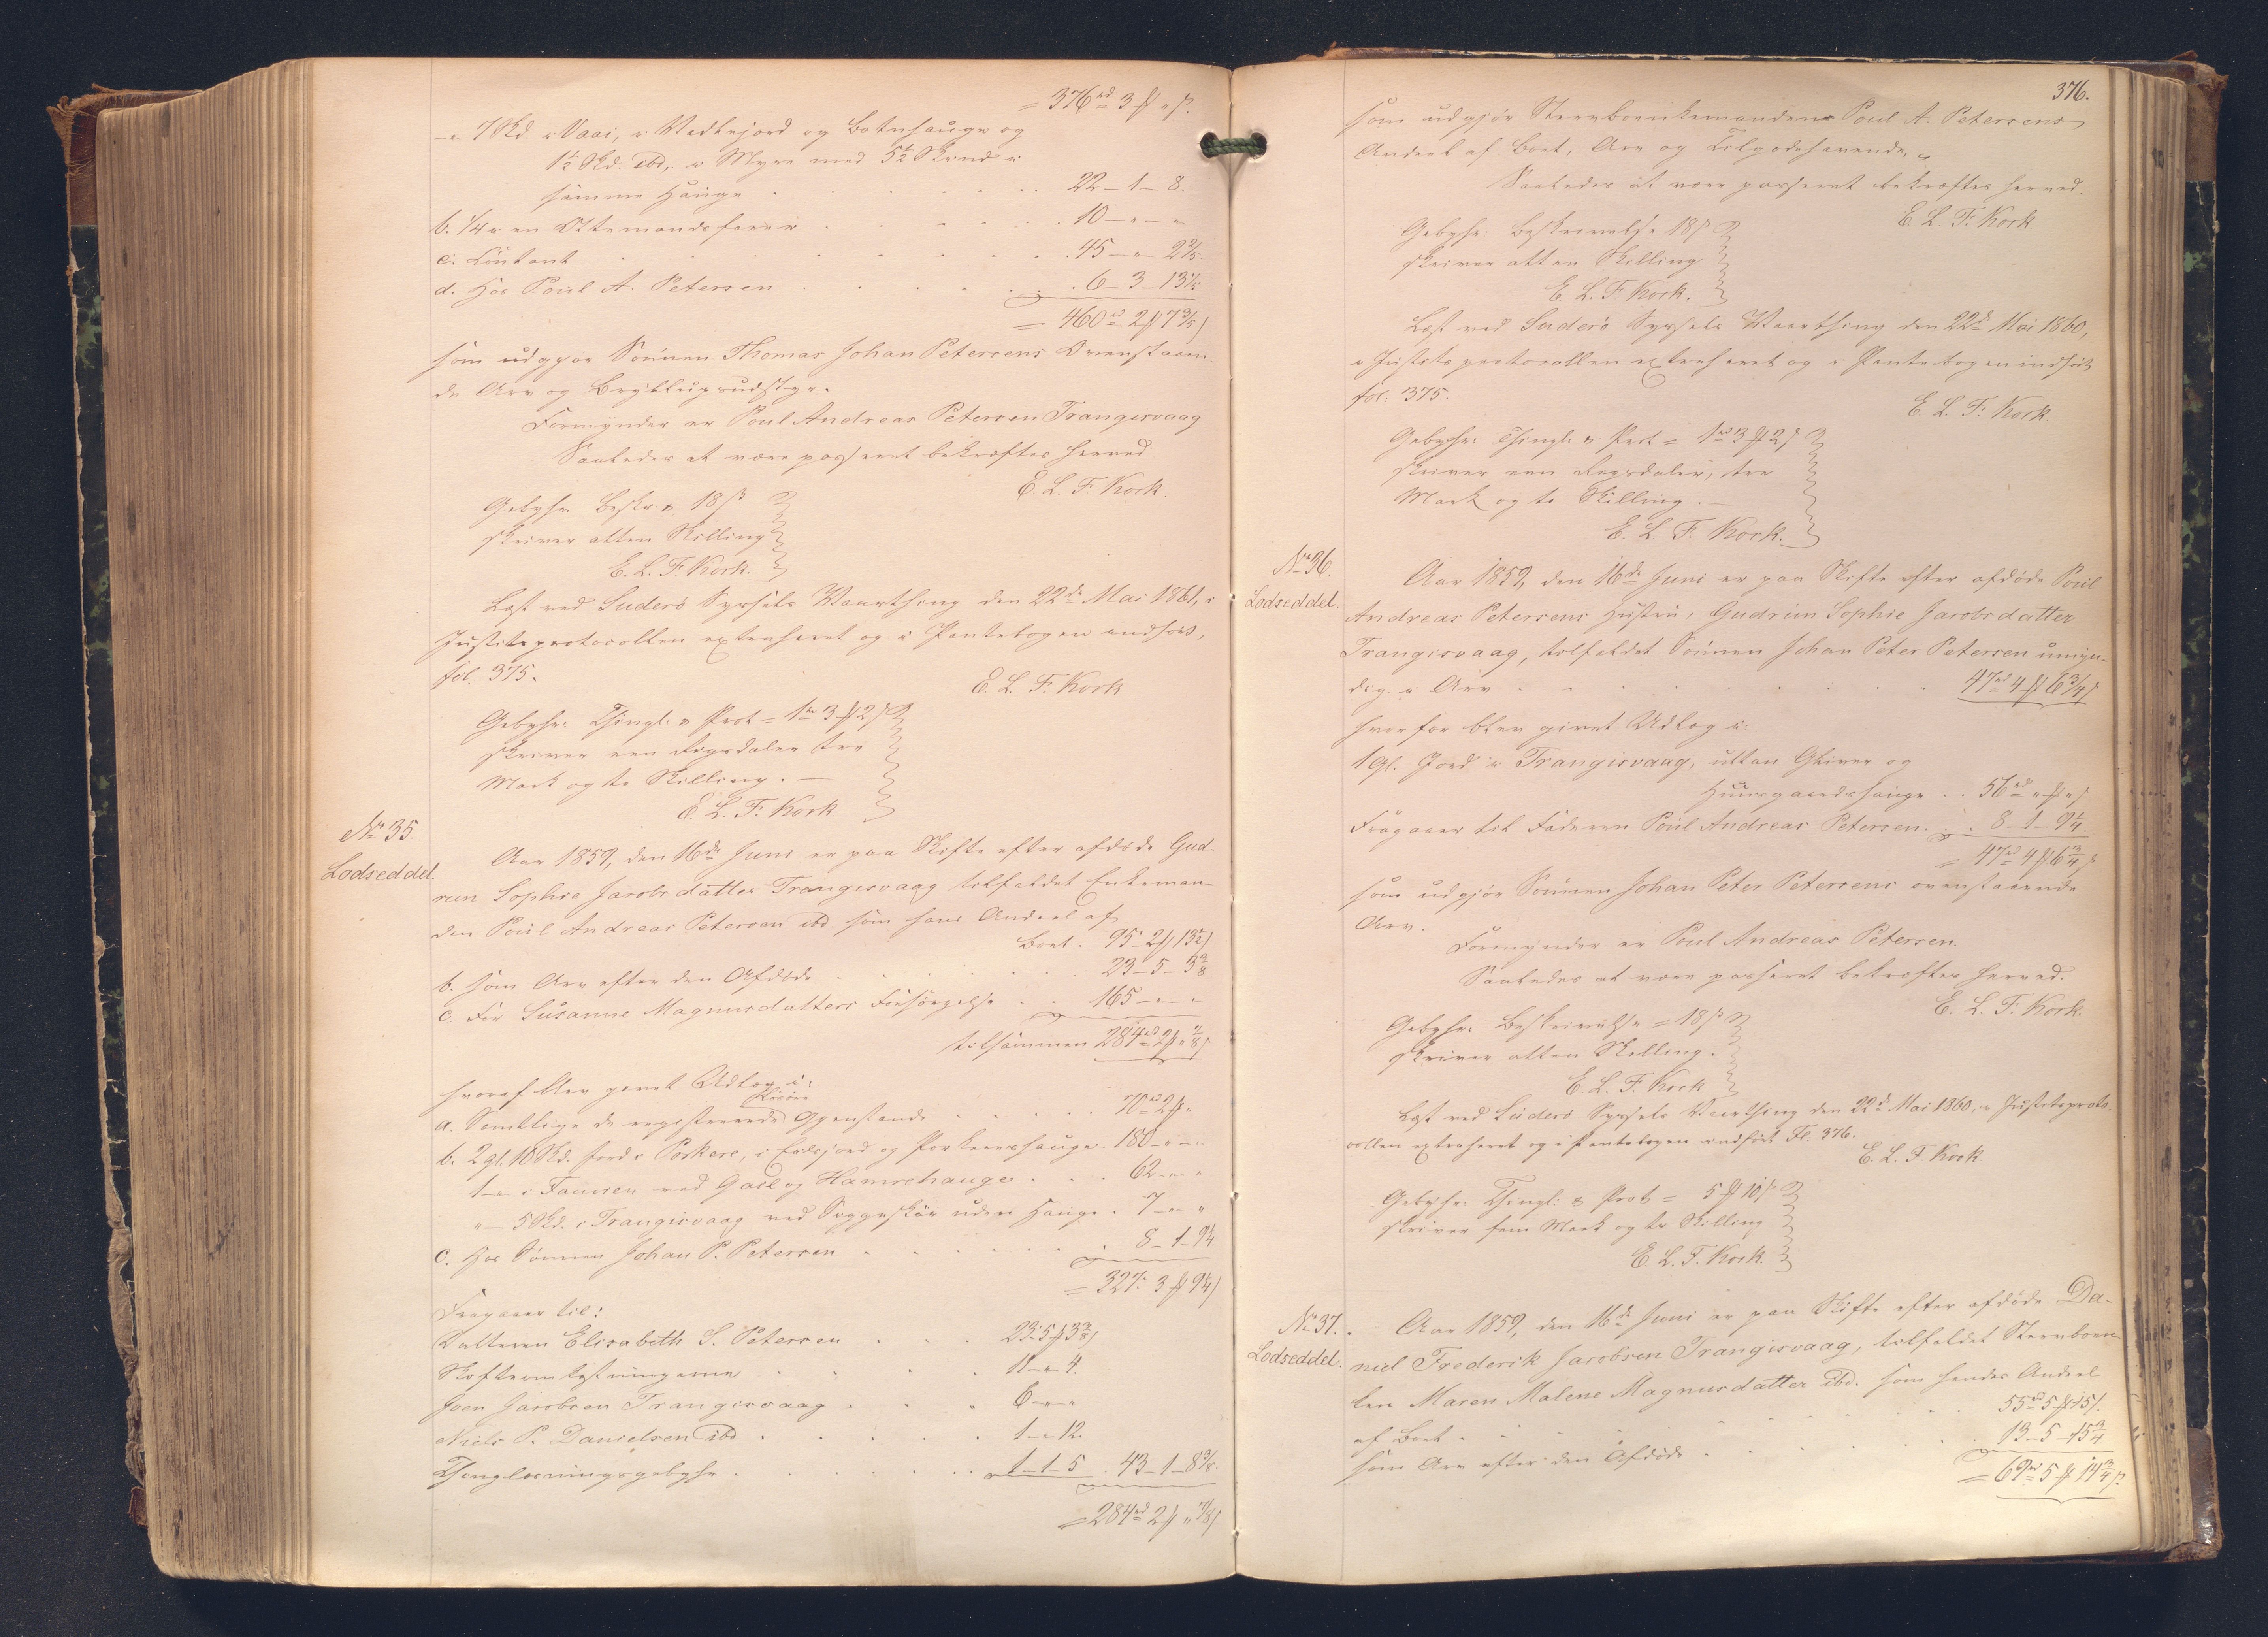 = 376rd 3 ₰ " ß.
-"- 7 Skd. i Vaai, i Vadtejord og Botnhauge og
1½ Skd. ibd., i Myre med 5½ Skind i
samme Hauge . . . 22 – 1 – 8.
b. 1/4 i en Ottemandsfarer . . . 10 – " – "
c. Contant . . . 45 – " – 2 2/5
d. Hos Poul A. Petersen . . . 6 – 3 – 13 1/5
= 460rd 2 ₰ 7 3/5 ß
som udgjør Sönnen Thomas Johan Petersens Ovenstaaen-
de Arv og Bryllupsudstyr.
Formynder er Poul Andreas Petersen Trangisvaag
Saaledes at være passeret bekræftes herved
E. L. F. Kork.
Gebyhr. Beskr. = 18 ß
skriver atten Skilling
E. L. F. Kork.
Læst ved Suderö Syssels Vaarthing den 22de Mai 1861, i
Justitsprotocollen extraheret og i Pantebogen indført,
fol. 375.
E. L. F. Kork
Gebyhr: Thingl: & Prot = 1rd 3 ₰ 2 ß
skriver een Rigsdaler tre
Mark og to Skilling. –
E. L. F. Kork
No 35.
Lodseddel.
Aar 1859, den 16de Juni er paa Skifte efter afdöde Gud-
run Sophie Jacobsdatter Trangisvaag tilfaldet Enkeman-
den Poul Andreas Petersen ibd som hans Andeel af
Boet . 95 – 2 ₰ 13½ ß
b. som Arv efter den Afdöde . . . 23 – 5 – 3 3/8
c. For Susanne Magnusdatters Forsörgelse . . 165 – " – "
tilsammen 284rd 2 ₰ " 7/8 ß
hvoraf blev givet Udlæg i:
Rörøre
a. Samtlige de registrerede Gjenstande . . . 70rd 2 ₰ "
b. 2 gl. 10 Skd. Jord i Porkere, i Erdsjord og Porkereshauge . 180 – " – "
1 – " i Famien ved Gail og Hamrehauge . . . 62 – " – "
" – 5 Skd. i Trangisvaag ved Dyggeskör uden Hauge . 7 – " – "
c. Hos Sönnen Johan P. Petersen . . . 8 – 1 – 9¼
= 327rd 3 ₰ 9¼ ß
Fragaaer til:
Datteren Elisabeth S. Petersen . . . 23 – 5 ₰ 3 3/8 ß
Skifteomkostningerne . . . 11 – " – 4.
Joen Jacobsen Trangisvaag . . . 6 – " – "
Niels P. Danielsen ibd . . . 1 – " – 12.
Thinglæsningsgebyhr . . . 1 – 1 – 5 . 43 – 1 – 8 3/8.
= 284rd 2 ₰ " 7/8 ß
376.
som udgjør Stervboenkemandens Poul A. Petersens
Andeel af Boet, Arv og Tilgodehavende. "
Saaledes at være passeret bekræftes herved.
E. L. F. Kork
Gebyhr: Beskrivelse 18 ß
skriver atten Skilling
E. L. F. Kork.
Læst ved Suderö Syssels Vaarthing den 22de Mai 1860,
i Justitsprotocollen extraheret og i Pantebogen indført
fol. 375.
E. L. F. Kork
Gebyhr: Thingl: & Prot = 1rd 3 ₰ 2 ß
skriver een Rigsdaler, tre
Mark og to Skilling. –
E. L. F. Kork.
No 36.
Lodseddel.
Aar 1859, den 16de Juni er paa Skifte efter afdöde Poul
Andreas Petersens Hustru, Gudrun Sophie Jacobsdatter
Trangisvaag, tilfaldet Sönnen Johan Peter Petersen umyn-
dig i Arv . . . 47rd 4 ₰ 6¾ ß
hvorfor blev givet Udlæg i:
1 gl. Jord i Trangisvaag, uttan Gliver og
Huusgaardshauge . . 56rd " ₰ " ß
Fragaaer til Faderen Poul Andreas Petersen . . 8 – 1 – 9¼
= 47rd 4 ₰ 6¾ ß
som udgjør Sönnen Johan Peter Petersens ovenstaaende
Arv.
Formynder er Poul Andreas Petersen.
Saaledes at være passeret bekræftes herved.
E. L. F. Kork.
Gebyhr: Beskrivelse = 18 ß
skriver atten Skilling.
E. L. F. Kork
Læst ved Suderö Syssels Vaarthing den 22d Mai 1860, i Justitsproto-
collen extraheret og i Pantebogen indført Fl. 376.
E. L. F. Kork
Gebyhr: Thingl: & Prot = 5 ₰ 10 ß
skriver fem Mark og ti Skilling
E. L. F. Kork.
No 37.
Lodseddel.
Aar 1859, den 16de Juni er paa Skifte efter afdöde Da-
niel Frederik Jacobsen Trangisvaag, tilfaldet Stervboen-
ken Maren Malene Magnusdatter ibd. som hendes Andeel
af Boet . . . 55rd 5 ₰ 15 ß.
som Arv efter den Afdöde . . . 13 – 5 – 15¾
= 69rd 5 ₰ 14¾ ß